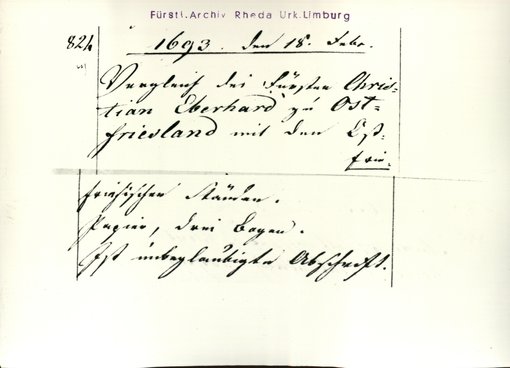 Fürstl. Archiv Rheda Urk. Limburg
824
1693. den 18. Febr.
Vergleich des Fürsten Chris-
tian Eberhard zu Ost-
friesland mit den Ost-
frie-
friesischen Ständen.
Papier, drei Bogen.
Ist unbeglaubigte Abschrift.